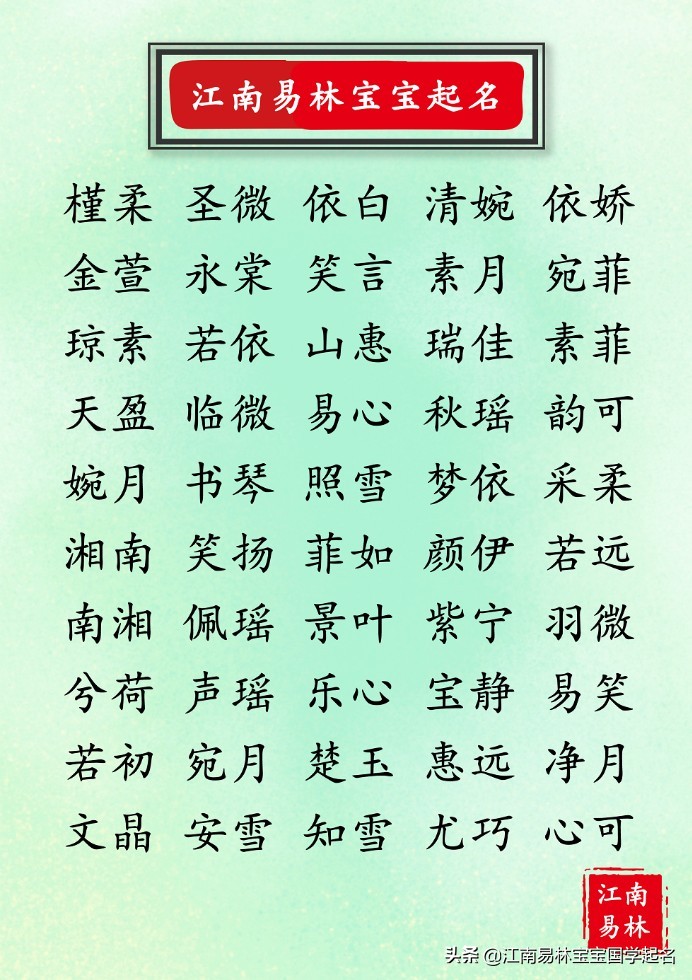 江南易林宝宝起名
槿柔 圣微 依白 清婉 依娇
金萱 永棠 笑言 素月 宛菲
琼素 若依 山惠 瑞佳 素菲
天盈 临微 易心 秋瑶 韵可
婉月 书琴 照雪 梦依 采柔
湘南 笑扬 菲如 颜伊 若远
南湘 佩瑶 景叶 紫宁 羽微
兮荷 声瑶 乐心 宝静 易笑
若初 宛月 楚玉 惠远 净月
文晶 安雪 知雪 尤巧 心可
江南
易林
头条 @江南易林宝宝国学起名